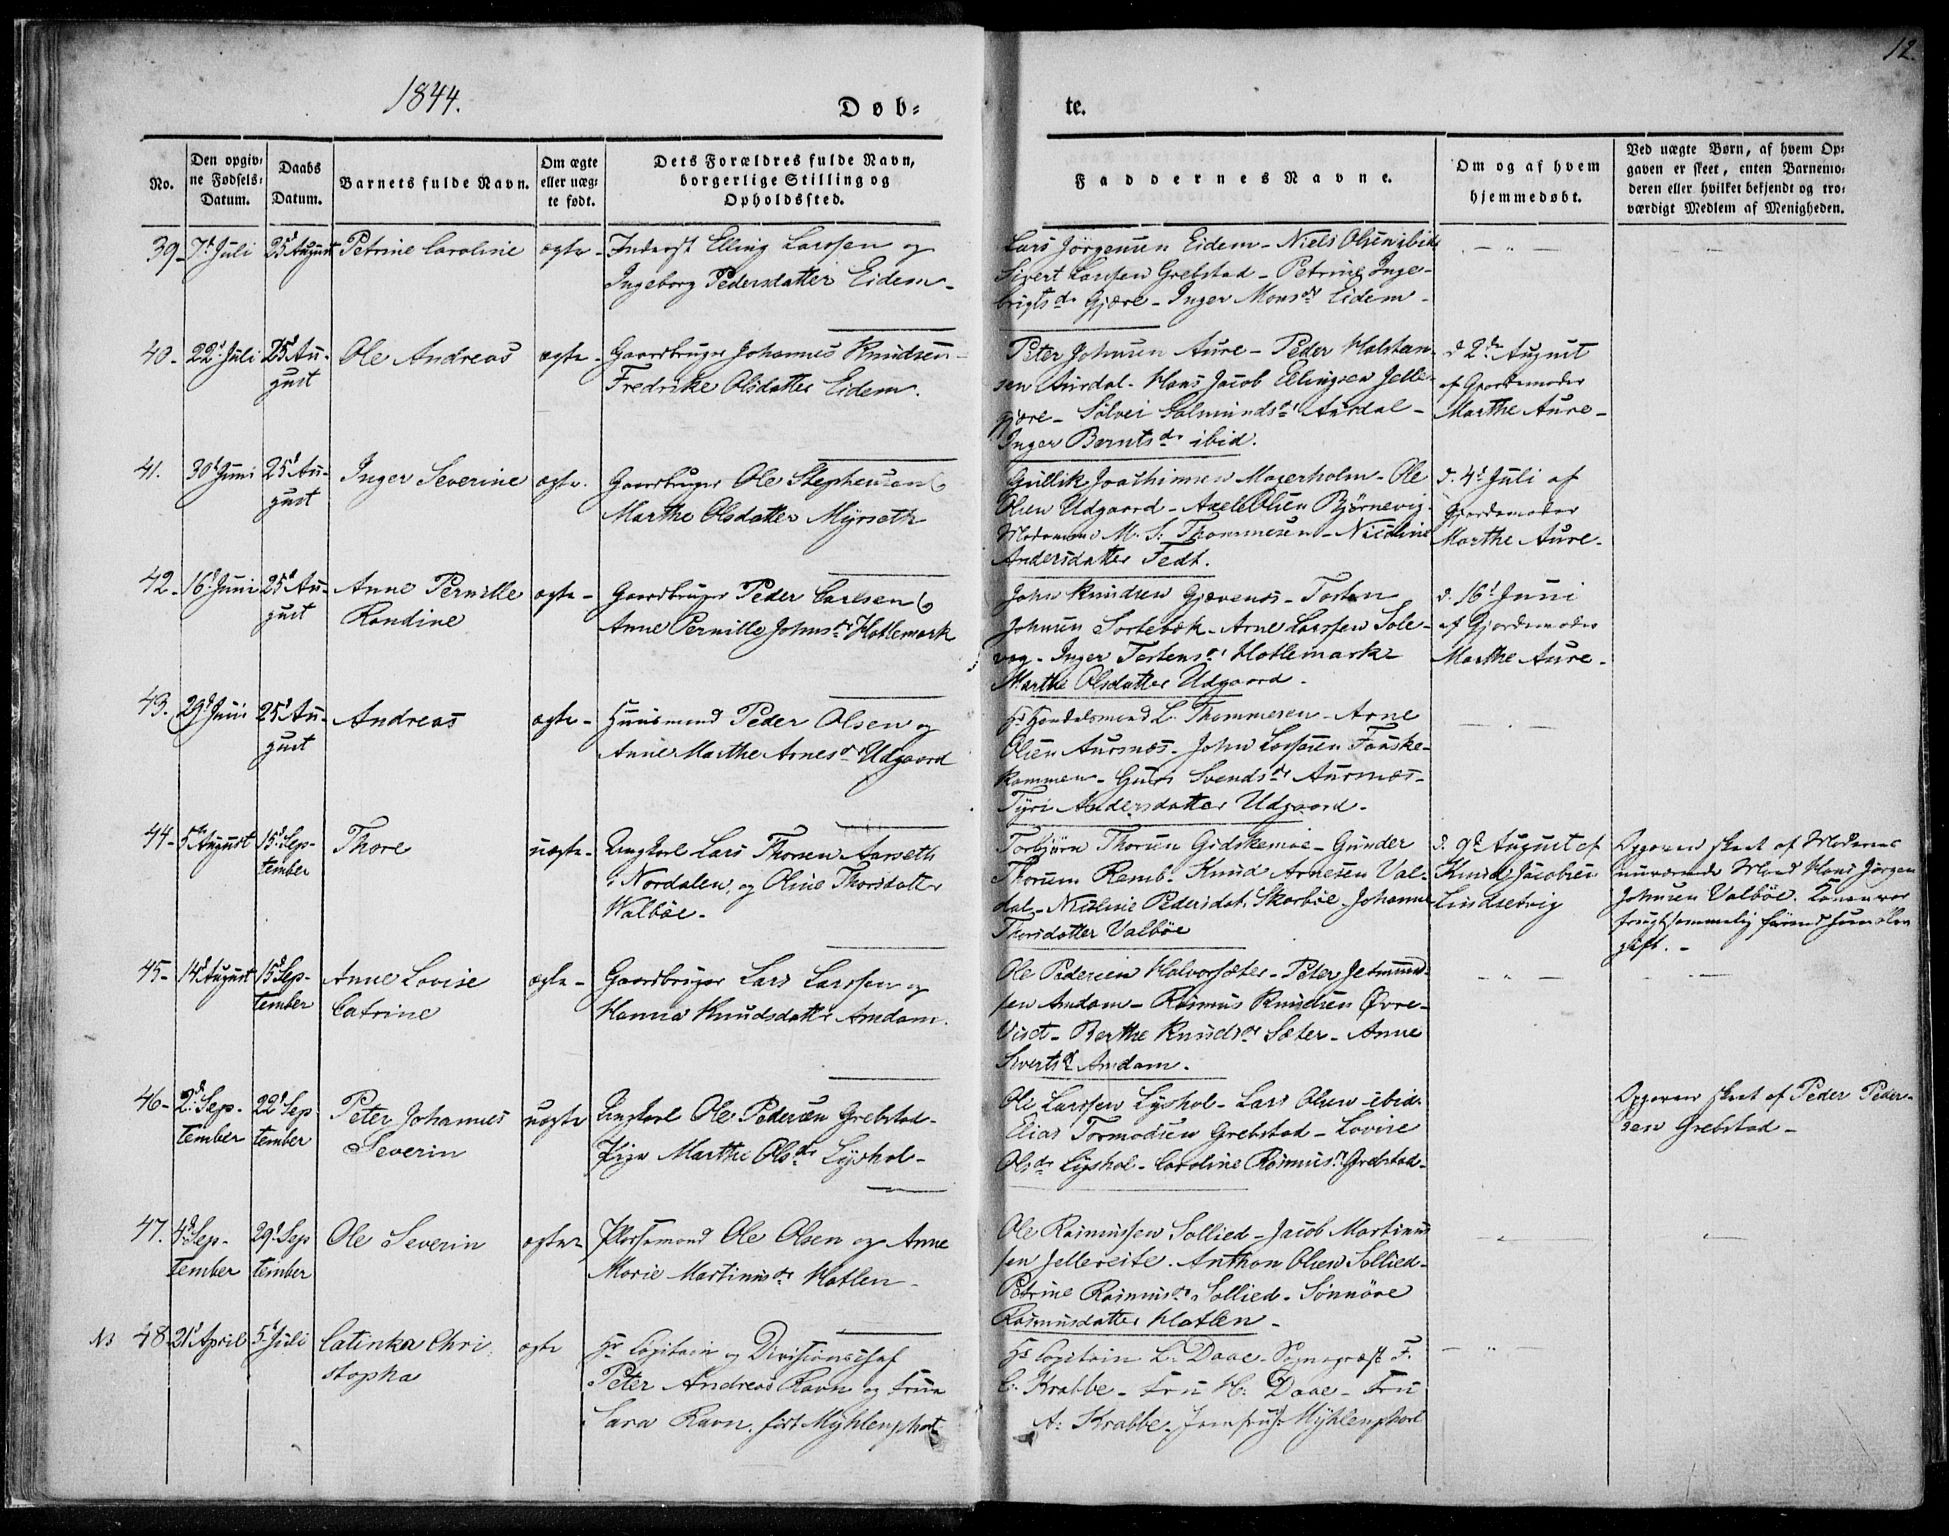 12.
1844.
Døb-
te.
No.
Den opgiv-
ne Fødsels-
Datum.
Daabs
Datum.
Barnets fulde Navn.
Om ægte
eller uæg-
te født.
Dets Forældres fulde Navn,
borgerlige Stilling og
Opholdssted.
Faddernes Navne.
Om og af hvem
hjemmedøbt.
Ved uægte Børn, af hvem Op-
gaven er skeet, enten Barnemo-
deren eller hvilket bekjendt og tro-
værdigt Medlem af Menigheden.
39- 7d Juli 25d August Petrine Caroline ægte- Inderst Elling Larssen og
Ingeborg Pedersdatter Eidem-
Lars Jørgensen Eidem- Niels Olsen ibid
Sivert Larssen Grebstad- Petrine Inge-
brigtsdr Gjære- Inger Monsdr Eidem-
40- 22d Juli 25d Au-
gust
Ole Andreas ægte- Gaardbruger Johannes Knudsen-
Fredrike Olsdatter Eidem.
Peter Johnsen Aure- Peder Halstein-
sen Aurdal- Hans Jacob Ellingsen Jelle-
gjære- Sølvei Salmundsdr Aurdal-
Inger Berntsdr ibid.
d 2den August
af Gjordemoder
Marthe Aure-
41. 30d Juni 25d Au-
gust
Inger Severine ægte. Gaardbruger Ole Stephensen &
Marthe Olsdatter Myrseth
Gullik Joachimsen Magerholm- Ole
Olsen Udgaard- Axel Olsen Bjørnevig-
Madamme M. S. Thommesen- Nicoline
Andersdatter Fedt.
d. 4d Juli af
Gjordemoder
Marthe Aure-
42- 16d Juni 25d Au-
gust
Anne Pernille
Randine
ægte- Gaardbruger Peder Carlsen &
Anne Pernille Johnsdr Hatlemark
John Knudsen Gjævenes- Tosten
Johnsen Sortebæk- Arne Larssen Sole-
vog- Inger Tostensdr Hatlemark-
Marthe Olsdatter Udgaard-
d. 16d Juni
af Gjordemoder
Marthe Aure-
43. 29d Juni 25d Au-
gust
Andreas ægte- Huusmand Peder Olsen og
Anne Marthe Arnesdr Udgaard
Hr Handelsmand L. Thommesen- Arne
Olsen Aursnæs- John Larssen Fauske-
kammen- Guro Svendsdr Aursnæs-
Tyri Andersdatter Udgaard-
44- 5te August 15d Sep-
tember
Thore uægte- Ungkarl Lars Thorsen Aarseth
i Nordalen, og Oline Thorsdatter
Walbøe-
Torbjørn Thorsen Gidskemoe- Gunder
Thorsen Remb- Knud Arnesen Val-
dal- Nicoline Pedersdat. Skarbøe- Johanne
Thorsdatter Valbøe
d. 9d August af
Knud Jacobsen
Lindsetvig
Opgaven skeet af Moderens
nuværende Mand Hans Jørgen
Johnsen Valbøe. Konen var
frugtsommelig førend hun blev
gift.-
45- 14d August 15d Sep-
tember
Anne Lovise
Catrine
ægte- Gaardbruger Lars Larssen og
Hanna Knudsdatter Amdam.
Ole Pedersen Halvorsæter- Peter Jetmund-
sen Amdam- Rasmus Knudsen Øvre-
Viset- Berthe Knudsdr Sæter- Anne
Sivertsdr Amdam.
46- 2d Sep-
tember
22d Sep
tember
Peter Johannes
Severin
uægte Ungkarl Ole Pedersen Grebstad-
Pige Marthe Olsdr Lyshol-
Ole Larssen Lyshol- Lars Olsen ibid.
Elias Tormodsen Grebstad- Lovise
Olsdr Lyshol- Caroline Rasmusdr Grebstad-
Opgaven skeet af Peder Peder-
sen Grebstad-
47. 4d Sep-
tember
29d Sep
tember
Ole Severin ægte- Pladsemand Ole Olsen og Anne
Marie Martinusdr Hatlen-
Ole Rasmussen Sollied- Jacob Martinus
sen Jellereite. Anthon Olsen Sollied-
Petrine Rasmusdr Sollied- Sønnøve
Rasmusdatter Hatlen-
NB 48- 21d April 5d Juli Catinka Chri-
stopha
ægte Hr Capitain og Divisionschef
Peter Andreas Ravn og Frue
Sara Ravn, født Myhlenphort
Hr Capitain L. Daae- Sognepræst F.
C. Krabbe- Fru H. Daae- Fru
A. Krabbe- Jomfru Myhlenphort